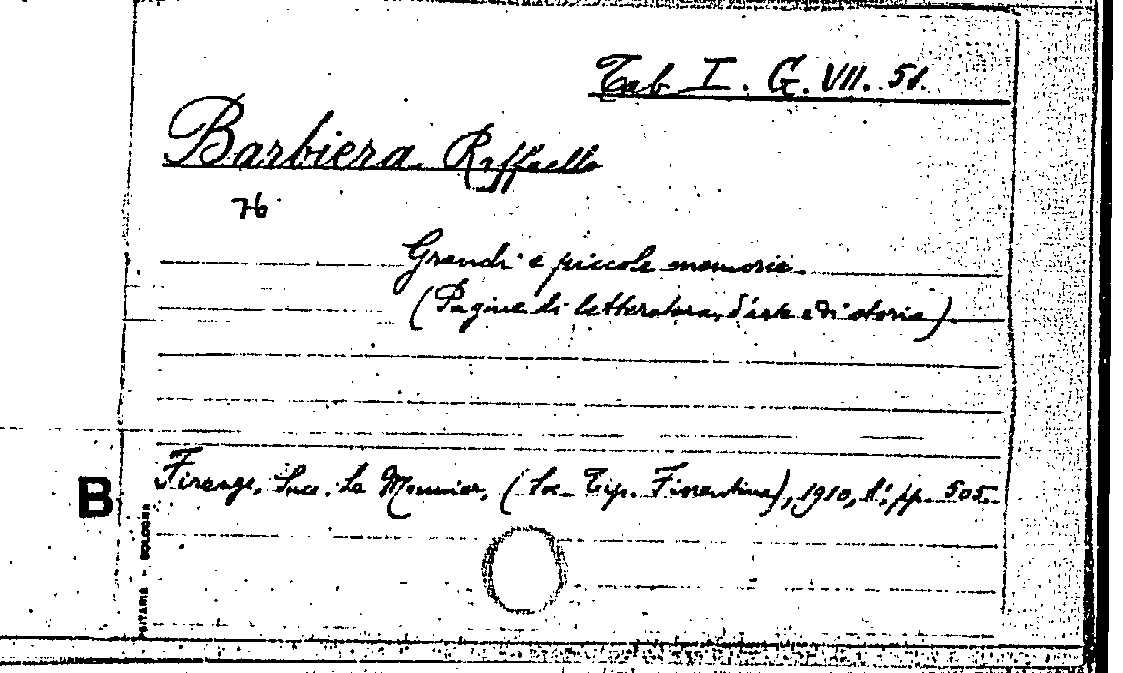 Tab I. G. VII. 51.
Barbiera Raffaello
76
Grandi e piccole memorie
(Pagine di letteratura, d'arte e di storia)
Firenze, Succ. Le Monnier, (Soc. Tip. Fiorentina), 1910, 8º, pp. 505.
B
BOLOGNA